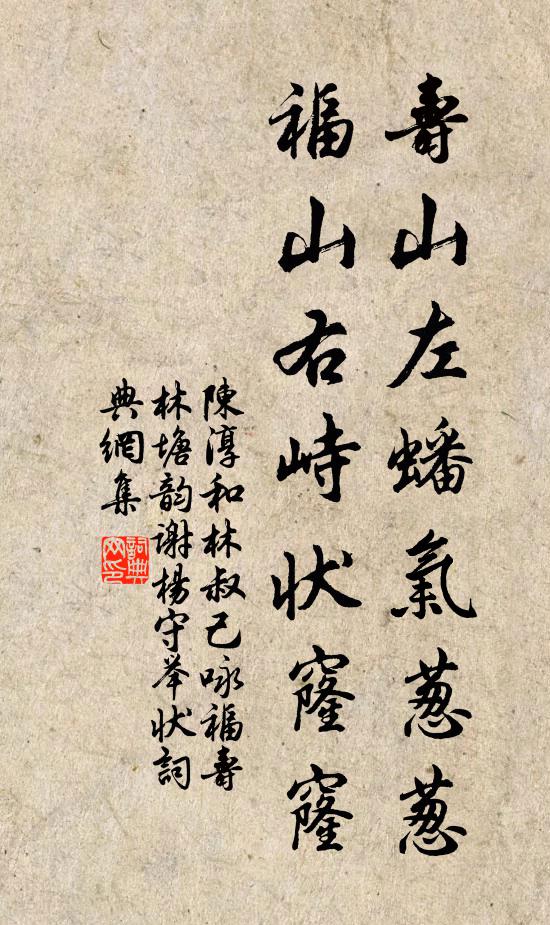 壽山左蟠氣葱葱
福山右峙状窿窿
陳淳和林叔己咏福壽
林塘韵謝楊守举状詞
典網集
詞典
网印